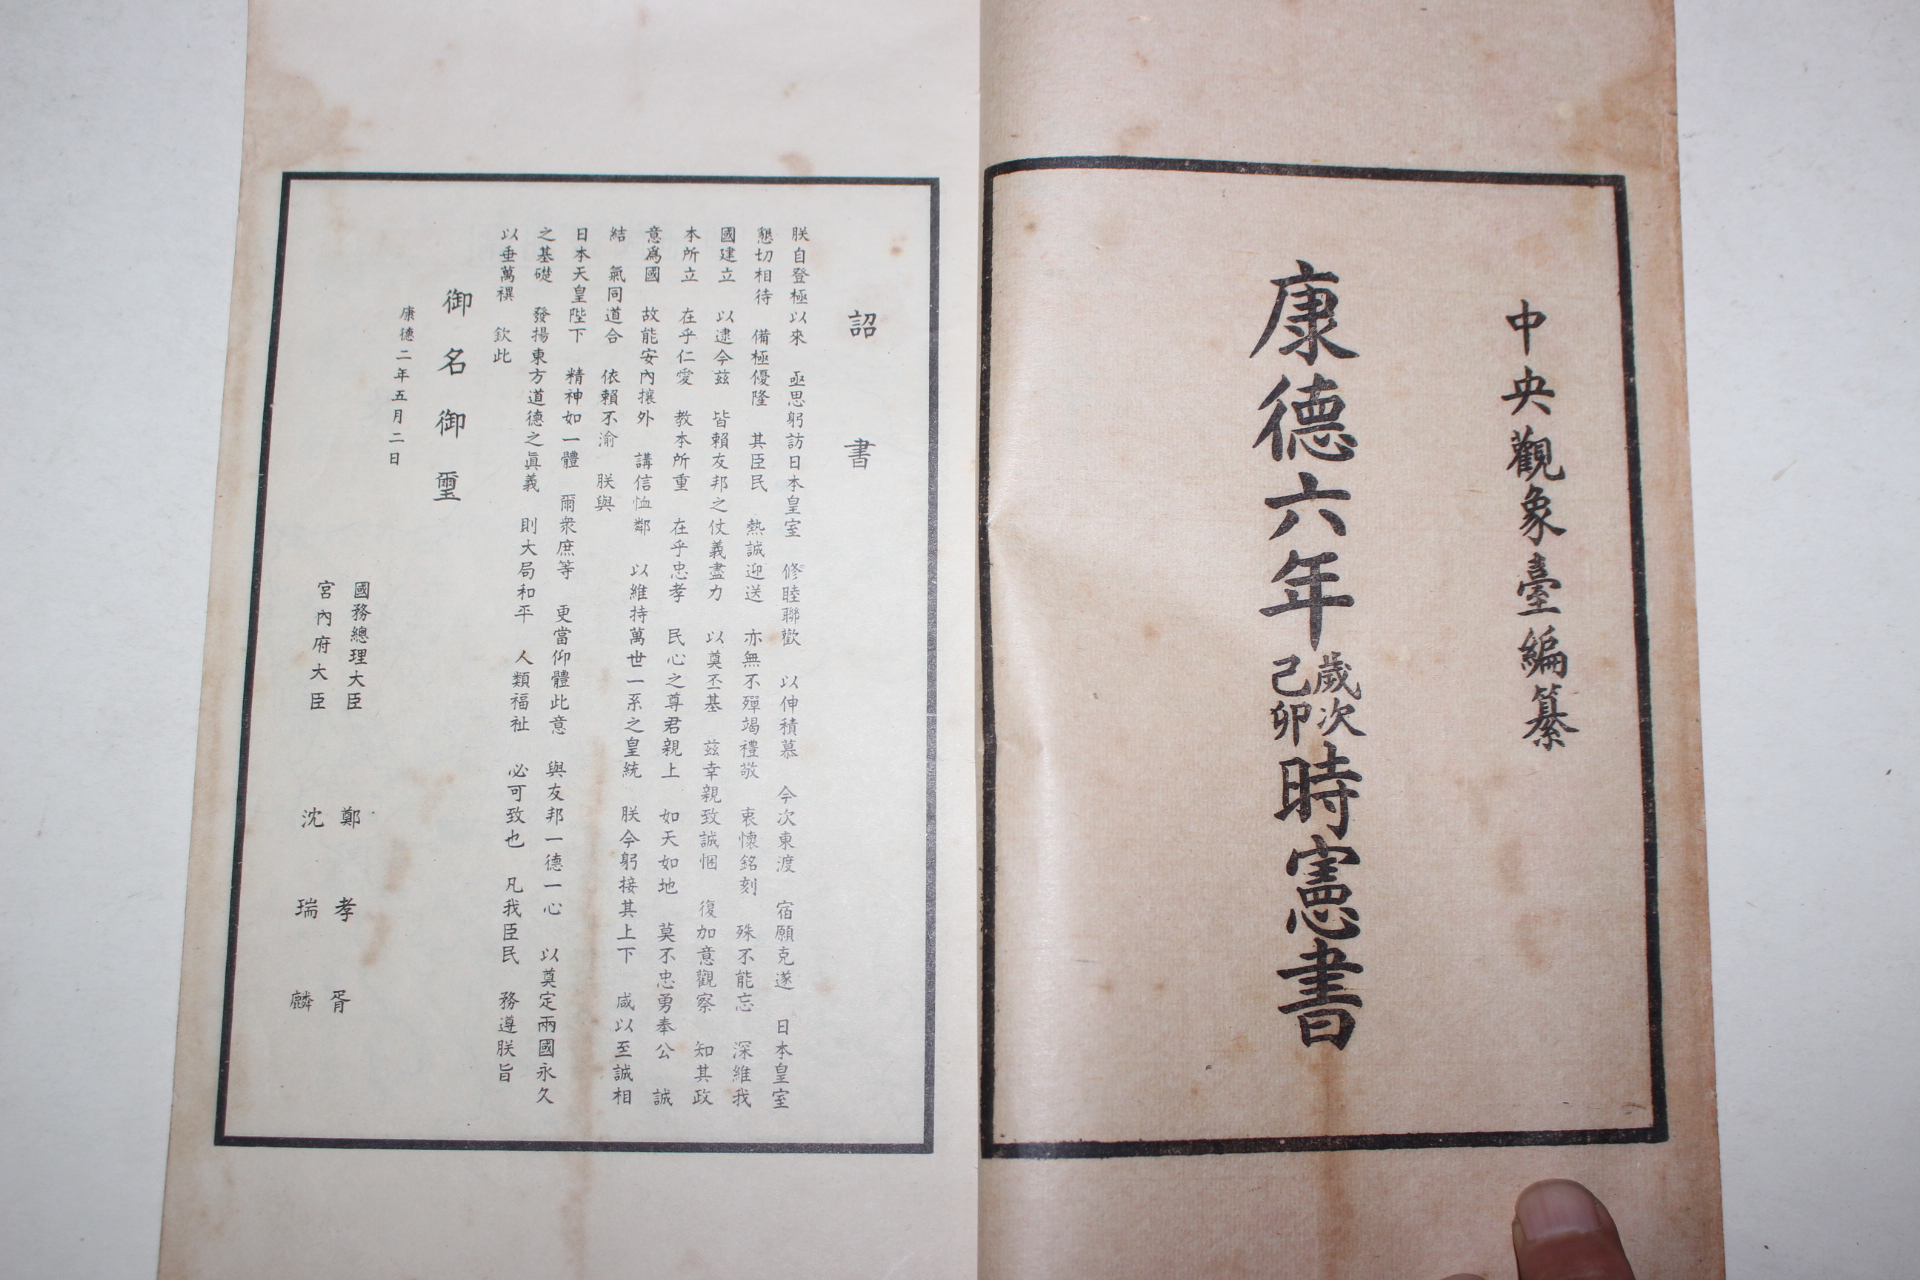 中央觀象臺編纂
康德六年歲次己卯時憲書
詔書
朕自登極以來　亟思躬訪日本皇室　修睦聯歡　以伸積慕　今次東渡　宿願克遂　日本皇室
懇切相待　備極優隆　其臣民　熱誠迎送　亦無不殫竭禮敬　衷懷銘刻　殊不能忘　深維我
國建立　以逮今茲　皆賴友邦之仗義盡力　以奠丕基　茲幸親致誠悃　復加意觀察　知其政
本所立　在乎仁愛　教本所重　在乎忠孝　民心之尊君親上　如天如地　莫不忠勇奉公　誠
意爲國　故能安內攘外　講信恤鄰　以維持萬世一系之皇統　朕今躬接其上下　咸以至誠相
結　氣同道合　依賴不渝　朕與
日本天皇陛下　精神如一體　爾衆庶等　更當仰體此意　與友邦一德一心　以奠定兩國永久
之基礎　發揚東方道德之眞義　則大局和平　人類福祉　必可致也　凡我臣民　務遵朕旨
以垂萬禩　欽此
御名御璽
康德二年五月二日
國務總理大臣　鄭孝胥
宮內府大臣　沈瑞麟